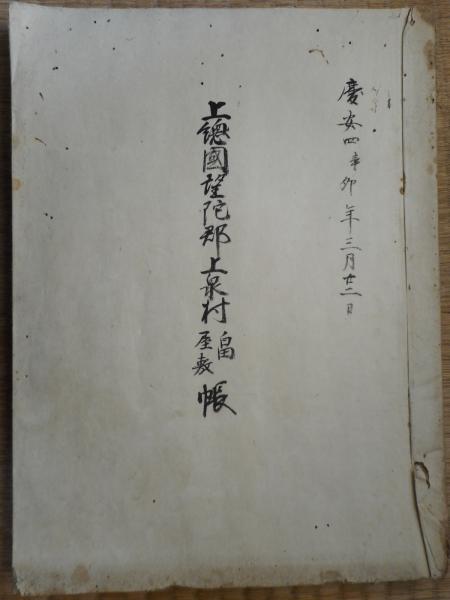 慶安四辛卯年三月廿二日
上總國望陀郡上泉村
畠
屋敷
帳